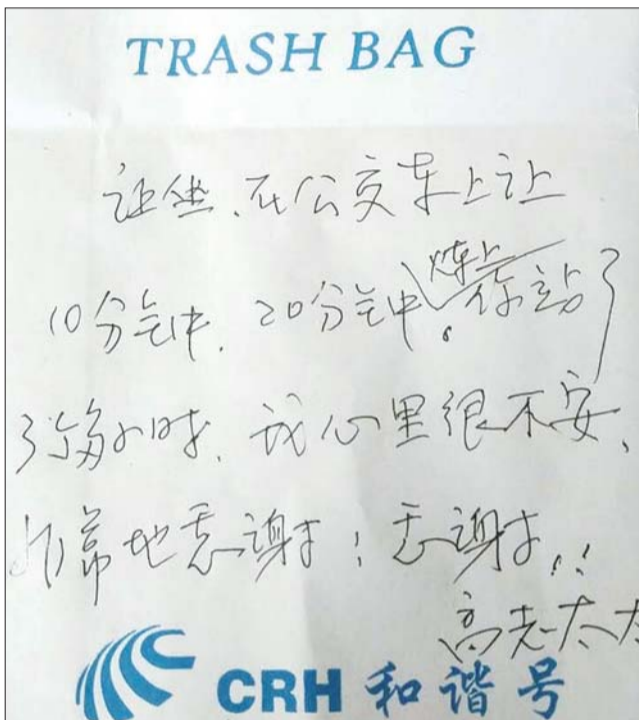 TRASH BAG
让坐、在公交车上让
10分钟、20分钟。火车上你站了
3个多小时、我心里很不安、
非常地感谢！感谢！！
高老太太
CRH 和谐号